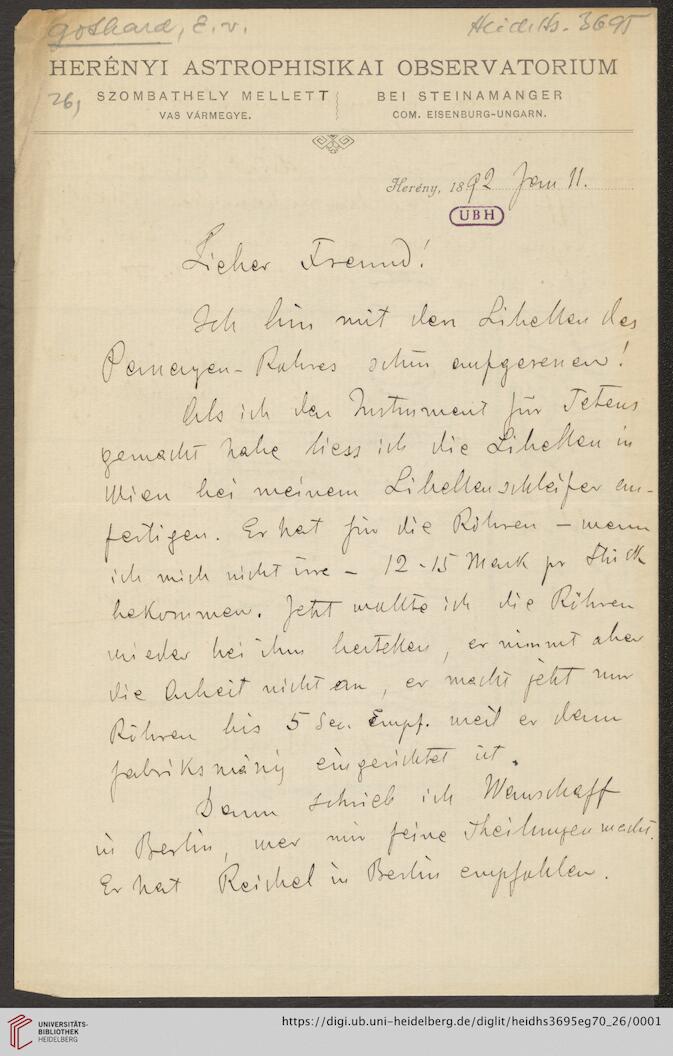 Gothard, E. v.
Heid. Hs. 3695
HERÉNYI ASTROPHISIKAI OBSERVATORIUM
26,
SZOMBATHELY MELLETT
BEI STEINAMANGER
VAS VÁRMEGYE.
COM. EISENBURG-UNGARN.
Herény, 1892 Jan 11.
UBH
Lieber Freund!
Ich bin mit den Libellen des
Passagen-Rohres schön aufgesessen!
Als ich das Instrument für Tetens
gemacht habe liess ich die Libellen in
Wien bei meinem Libellenschleifer an-
fertigen. Er hat für die Röhren – wenn
ich mich nicht irre – 12-15 Mark pr Stück
bekommen. Jetzt wollte ich die Röhren
wieder bei ihm bestellen, er nimmt aber
die Arbeit nicht an, er macht jetzt nur
Röhren bis 5 Sec. Empf. weil er dann
fabriksmässig eingerichtet ist.
Dann schrieb ich Wanschaff
in Berlin, wer mir feine Theilungen macht.
Er hat Reichel in Berlin empfohlen.
UNIVERSITÄTS-
BIBLIOTHEK
HEIDELBERG
https://digi.ub.uni-heidelberg.de/diglit/heidhs3695eg70_26/0001